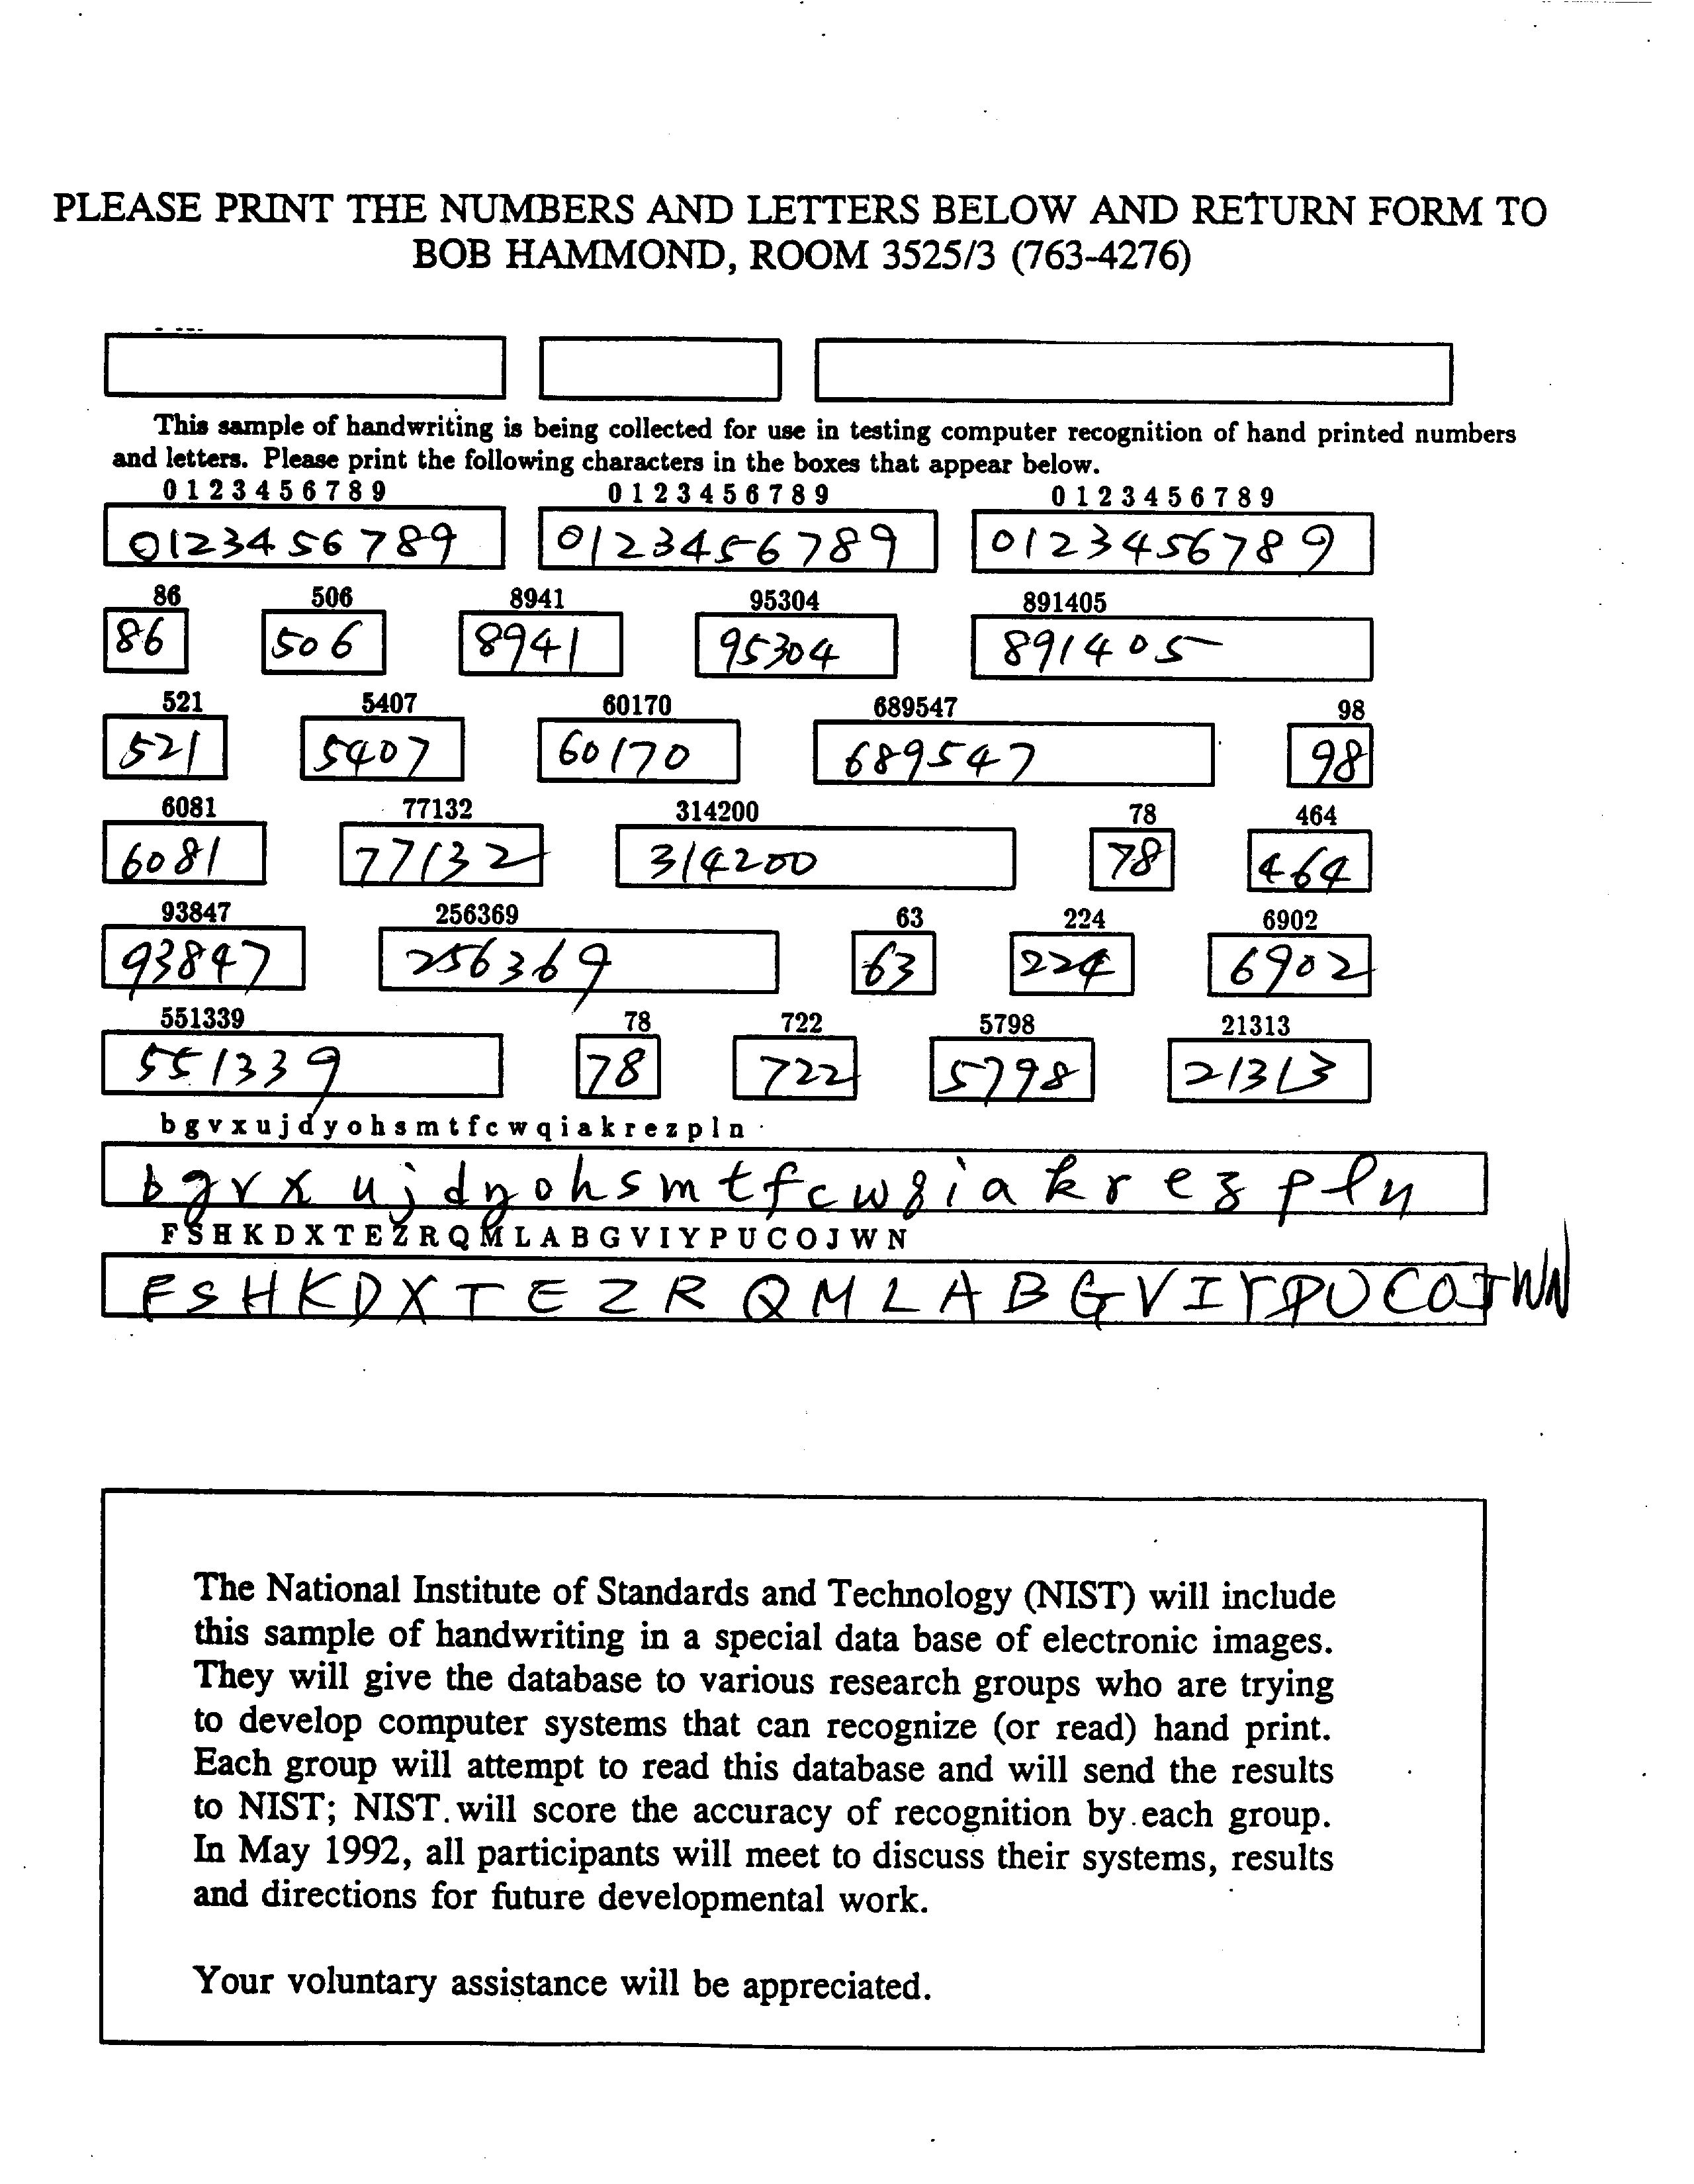 PLEASE PRINT THE NUMBERS AND LETTERS BELOW AND RETURN FORM TO
BOB HAMMOND, ROOM 3525/3 (763-4276)
This sample of handwriting is being collected for use in testing computer recognition of hand printed numbers
and letters. Please print the following characters in the boxes that appear below.
0 1 2 3 4 5 6 7 8 9 0 1 2 3 4 5 6 7 8 9 0 1 2 3 4 5 6 7 8 9
0123456789 0123456789 0123456789
86 506 8941 95304 891405
86 506 8941 95304 891405
521 5407 60170 689547 98
521 5407 60170 689547 98
6081 77132 314200 78 464
6081 77132 314200 78 464
93847 256369 63 224 6902
93847 256369 63 224 6902
551339 78 722 5798 21313
551339 78 722 5798 21313
b g v x u j d y o h s m t f c w q i a k r e z p l n
b g v x u j d y o h s m t f c w q i a k r e z p l n
F S H K D X T E Z R Q M L A B G V I Y P U C O J W N
F S H K D X T E Z R Q M L A B G V I Y P U C O J W N
The National Institute of Standards and Technology (NIST) will include
this sample of handwriting in a special data base of electronic images.
They will give the database to various research groups who are trying
to develop computer systems that can recognize (or read) hand print.
Each group will attempt to read this database and will send the results
to NIST; NIST will score the accuracy of recognition by each group.
In May 1992, all participants will meet to discuss their systems, results
and directions for future developmental work.
Your voluntary assistance will be appreciated.